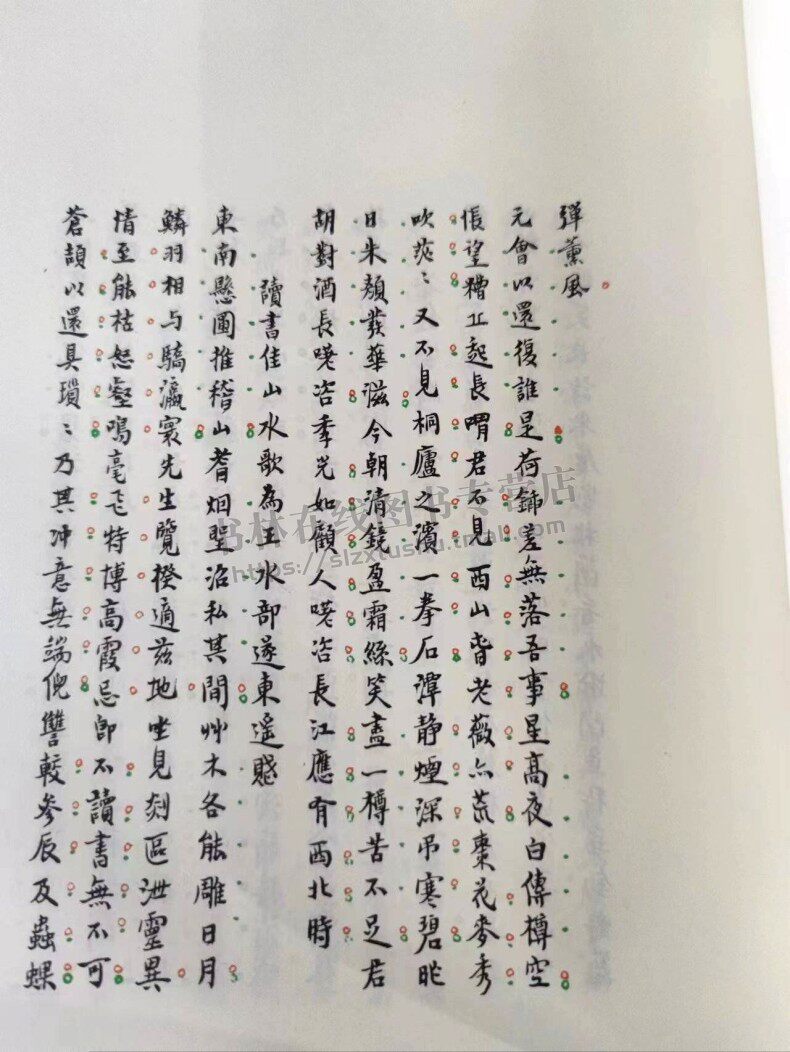 彈薰風
元會以還復誰是荷鍤差無落吾事星高夜白傳樽空
悵望糟丘起長喟君不見西山昔老薇亦荒棗花麥秀
吹茫〻又不見桐廬之濱一拳石潭靜煙深弔寒碧昨
日朱顏發華滋今朝清鏡盈霜絲笑盡一樽苦不足君
胡對酒長嘆咨季光如顧人嘆咨長江應有西北時
讀書佳山水歌為王水部遂東遙賤
東南懸圃推稽山耆烟聖沿私其間艸木各能雕日月
鱗羽相与驕瀛寰先生覽揆適茲地坐見刻區泄靈異
情至能枯怒壑鳴毫飞特博高霞忌卽不讀書無不可
蒼頡以還具瑣〻乃其冲意無端倪讐較參辰及蟲蜾
书林在线图书专营店
https://slzxtushu.tmall.com